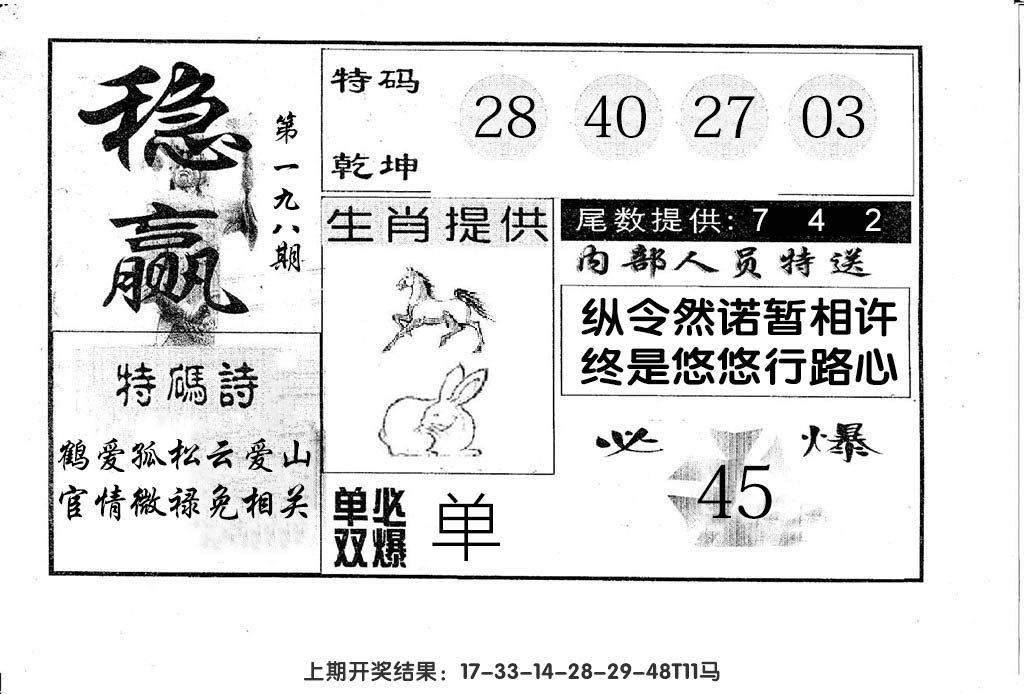 稳赢
第一九八期
特码
乾坤
28 40 27 03
生肖提供
尾数提供: 7 4 2
内部人员特送
纵令然诺暂相许
终是悠悠行路心
特碼詩
鹤爱孤松云爱山
官情微禄免相关
必爆
45
单双必爆
单
上期开奖结果：17-33-14-28-29-48T11马